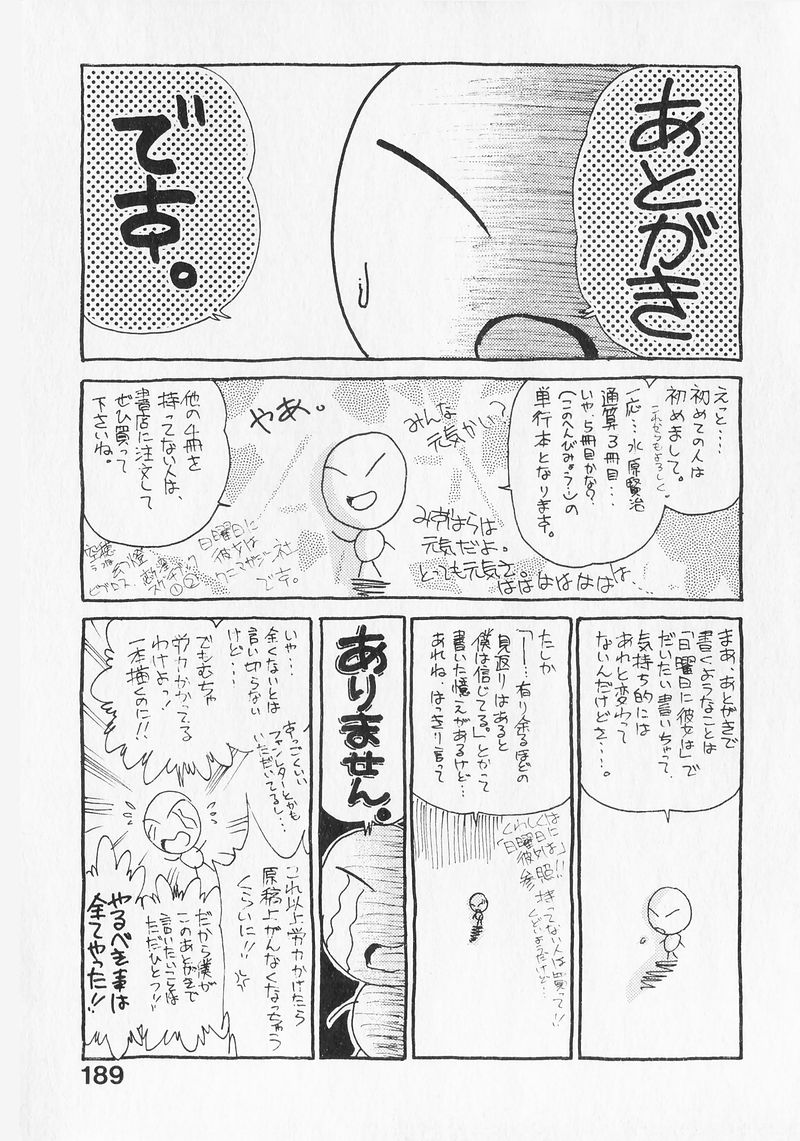 あとがき
です。
えっと・・・・
初めての人は
初めまして。
これからもよろしく。
一応・・・水原賢治
通算3冊目・・・
いや、5冊目かな?
(このへんびみょう?)の
単行本となります。
みんな
元気かい?
やあ。
みずはらは
元気だよ。
とっても元気さ。
はははははは・・・
他の4冊を
持ってない人は、
書店に注文して
ぜひ買って
下さいね。
日曜日に
彼女は
①②
です。
まあ、あとがきで
書くようなことは
「日曜日に彼女は」で
だいたい書いちゃって、
気持ち的には
あれと変わって
ないんだけどさ・・・・。
たしか
「!・・有り余るほどの
見返りはあると
僕は信じてる。」とかって
書いた憶えがあるけど・・・
あれね・はっきり言って
くわしくは
「日曜日に
彼女は」
参照!!
持ってない人は買って!!
くどいようだけど・・・
ありません。
いや・・・
全くないとは
言い切らない
けど・・・・
すっごくいい
ファンレターとかも
いただいてるし・・・
でもむちゃ
労力かかってる
わけよっ!
一本描くのに!!
これ以上労力かけたら
原稿上がんなくなっちゃう
くらいに!!
だから僕が
このあとがきで
言いたいことは
ただひとつ!!
やるべき事は
全てやった!!
189